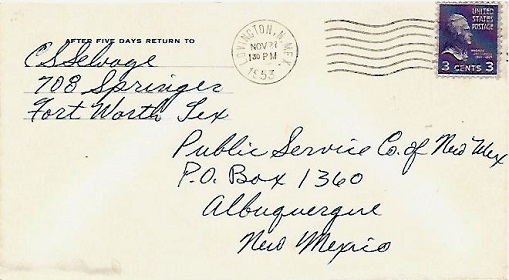 AFTER FIVE DAYS RETURN TO
C S Selvage
708 Springer
Fort Worth Tex
LOVINGTON, N. MEX.
NOV 27
1 30 PM
1953
UNITED STATES POSTAGE
3 CENTS 3
Public Service Co. of New Mex
P.O. Box 1360
Albuquerque
New Mexico